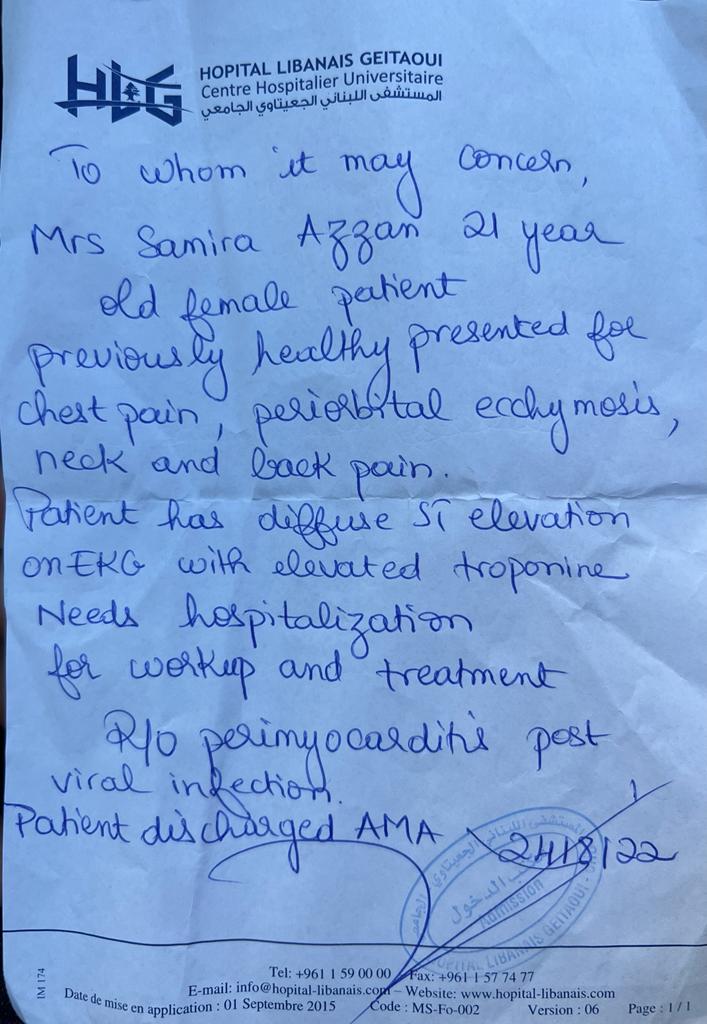 HLG
HOPITAL LIBANAIS GEITAOUI
Centre Hospitalier Universitaire
المستشفى اللبناني الجعيتاوي الجامعي
To whom it may concern,
Mrs Samira Azzan 21 year
old female patient
previously healthy presented for
chest pain, periorbital ecchymosis,
neck and back pain.
Patient has diffuse ST elevation
on EKG with elevated troponine
Needs hospitalization
for workup and treatment
R/o perimyocarditis post
viral infection.
Patient discharged AMA
24/8/22
المستشفى اللبناني الجعيتاوي
الدخول
ADMISSION
HOPITAL LIBANAIS GEITAOUI
Tel: +961 1 59 00 00 Fax: +961 1 57 74 77
E-mail: info@hopital-libanais.com – Website: www.hopital-libanais.com
IM 174
Date de mise en application : 01 Septembre 2015 Code : MS-Fo-002 Version : 06 Page : 1 / 1